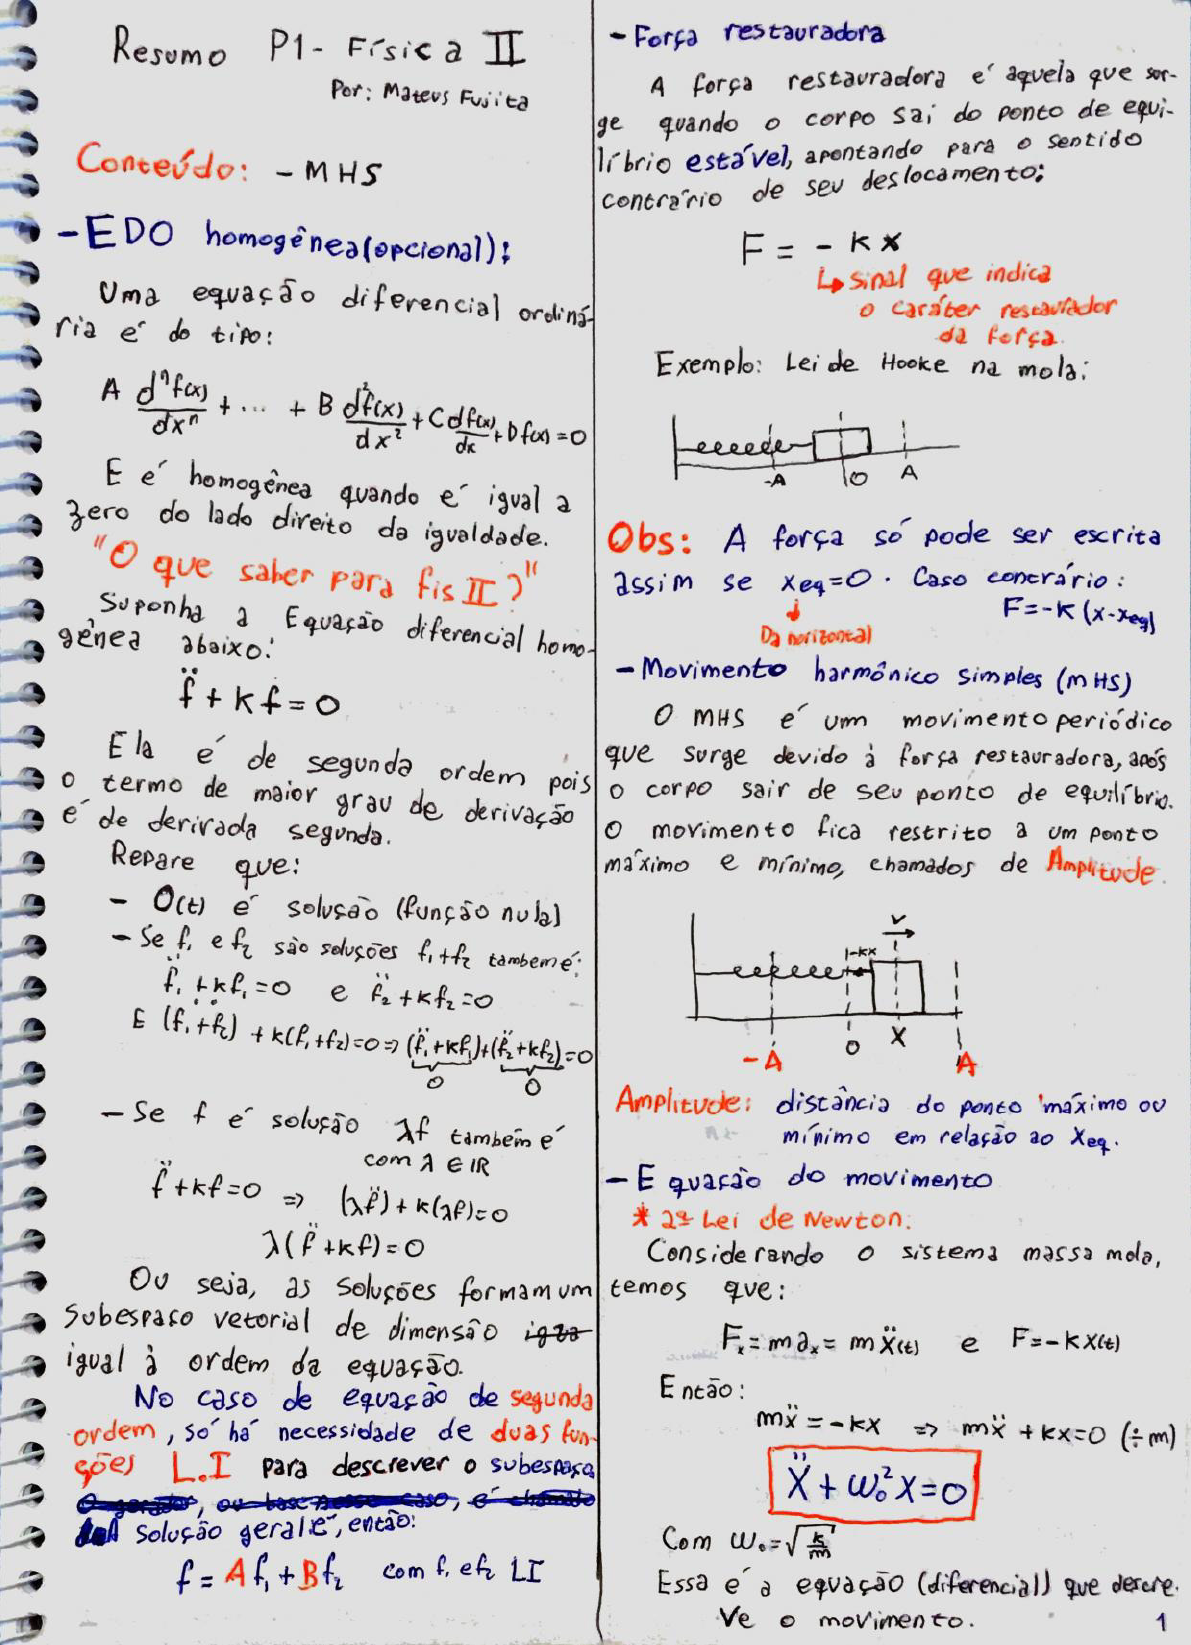 Resumo P1 - Física II
Por: Mateus Fujita
Conteúdo: - MHS
- EDO homogênea (opcional):
Uma equação diferencial ordiná-
ria é do tipo:
A dⁿf(x)/dxⁿ + ... + B d²f(x)/dx² + C df(x)/dx + D f(x) = 0
E é homogênea quando é igual a
zero do lado direito da igualdade.
"O que saber para fis II?"
Suponha a Equação diferencial homo-
gênea abaixo:
f̈ + kf = 0
Ela é de segunda ordem pois
o termo de maior grau de derivação
é de derivada segunda.
Repare que:
- O(t) é solução (função nula)
- Se f₁ e f₂ são soluções f₁+f₂ também é:
f̈₁ + kf₁ = 0 e f̈₂ + kf₂ = 0
E (f̈₁ + f̈₂) + k(f₁+f₂) = 0 => (f̈₁+kf₁)+(f̈₂+kf₂) = 0
0 0
- Se f é solução λf também é
com λ ∈ IR
f̈ + kf = 0 => (λf̈) + k(λf) = 0
λ(f̈ + kf) = 0
Ou seja, as soluções formam um
subespaço vetorial de dimensão
igual à ordem da equação.
No caso de equação de segunda
ordem, só há necessidade de duas fun-
ções L.I para descrever o subespaço
solução geral é, então:
f = Af₁ + Bf₂ com f₁ e f₂ LI
- Força restauradora
A força restauradora é aquela que sur-
ge quando o corpo sai do ponto de equi-
líbrio estável, apontando para o sentido
contrário de seu deslocamento:
F = - kx
↳ Sinal que indica
o caráter restaurador
da força.
Exemplo: Lei de Hooke na mola:
-A 0 A
Obs: A força só pode ser escrita
assim se xeq = 0. Caso contrário:
F = -k (x - xeq)
↓
Da horizontal
- Movimento harmônico simples (MHS)
O MHS é um movimento periódico
que surge devido à força restauradora, após
o corpo sair de seu ponto de equilíbrio.
O movimento fica restrito a um ponto
máximo e mínimo, chamados de Amplitude.
v
-kx
-A 0 X A
Amplitude: distância do ponto máximo ou
mínimo em relação ao xeq.
- Equação do movimento
* 2ª Lei de Newton:
Considerando o sistema massa mola,
temos que:
Fₓ = maₓ = mẍ(t) e F = -kx(t)
Então:
mẍ = -kx => mẍ + kx = 0 (÷m)
ẍ + ω₀²x = 0
Com ω₀ = √(k/m)
Essa é a equação (diferencial) que descre-
ve o movimento.
1